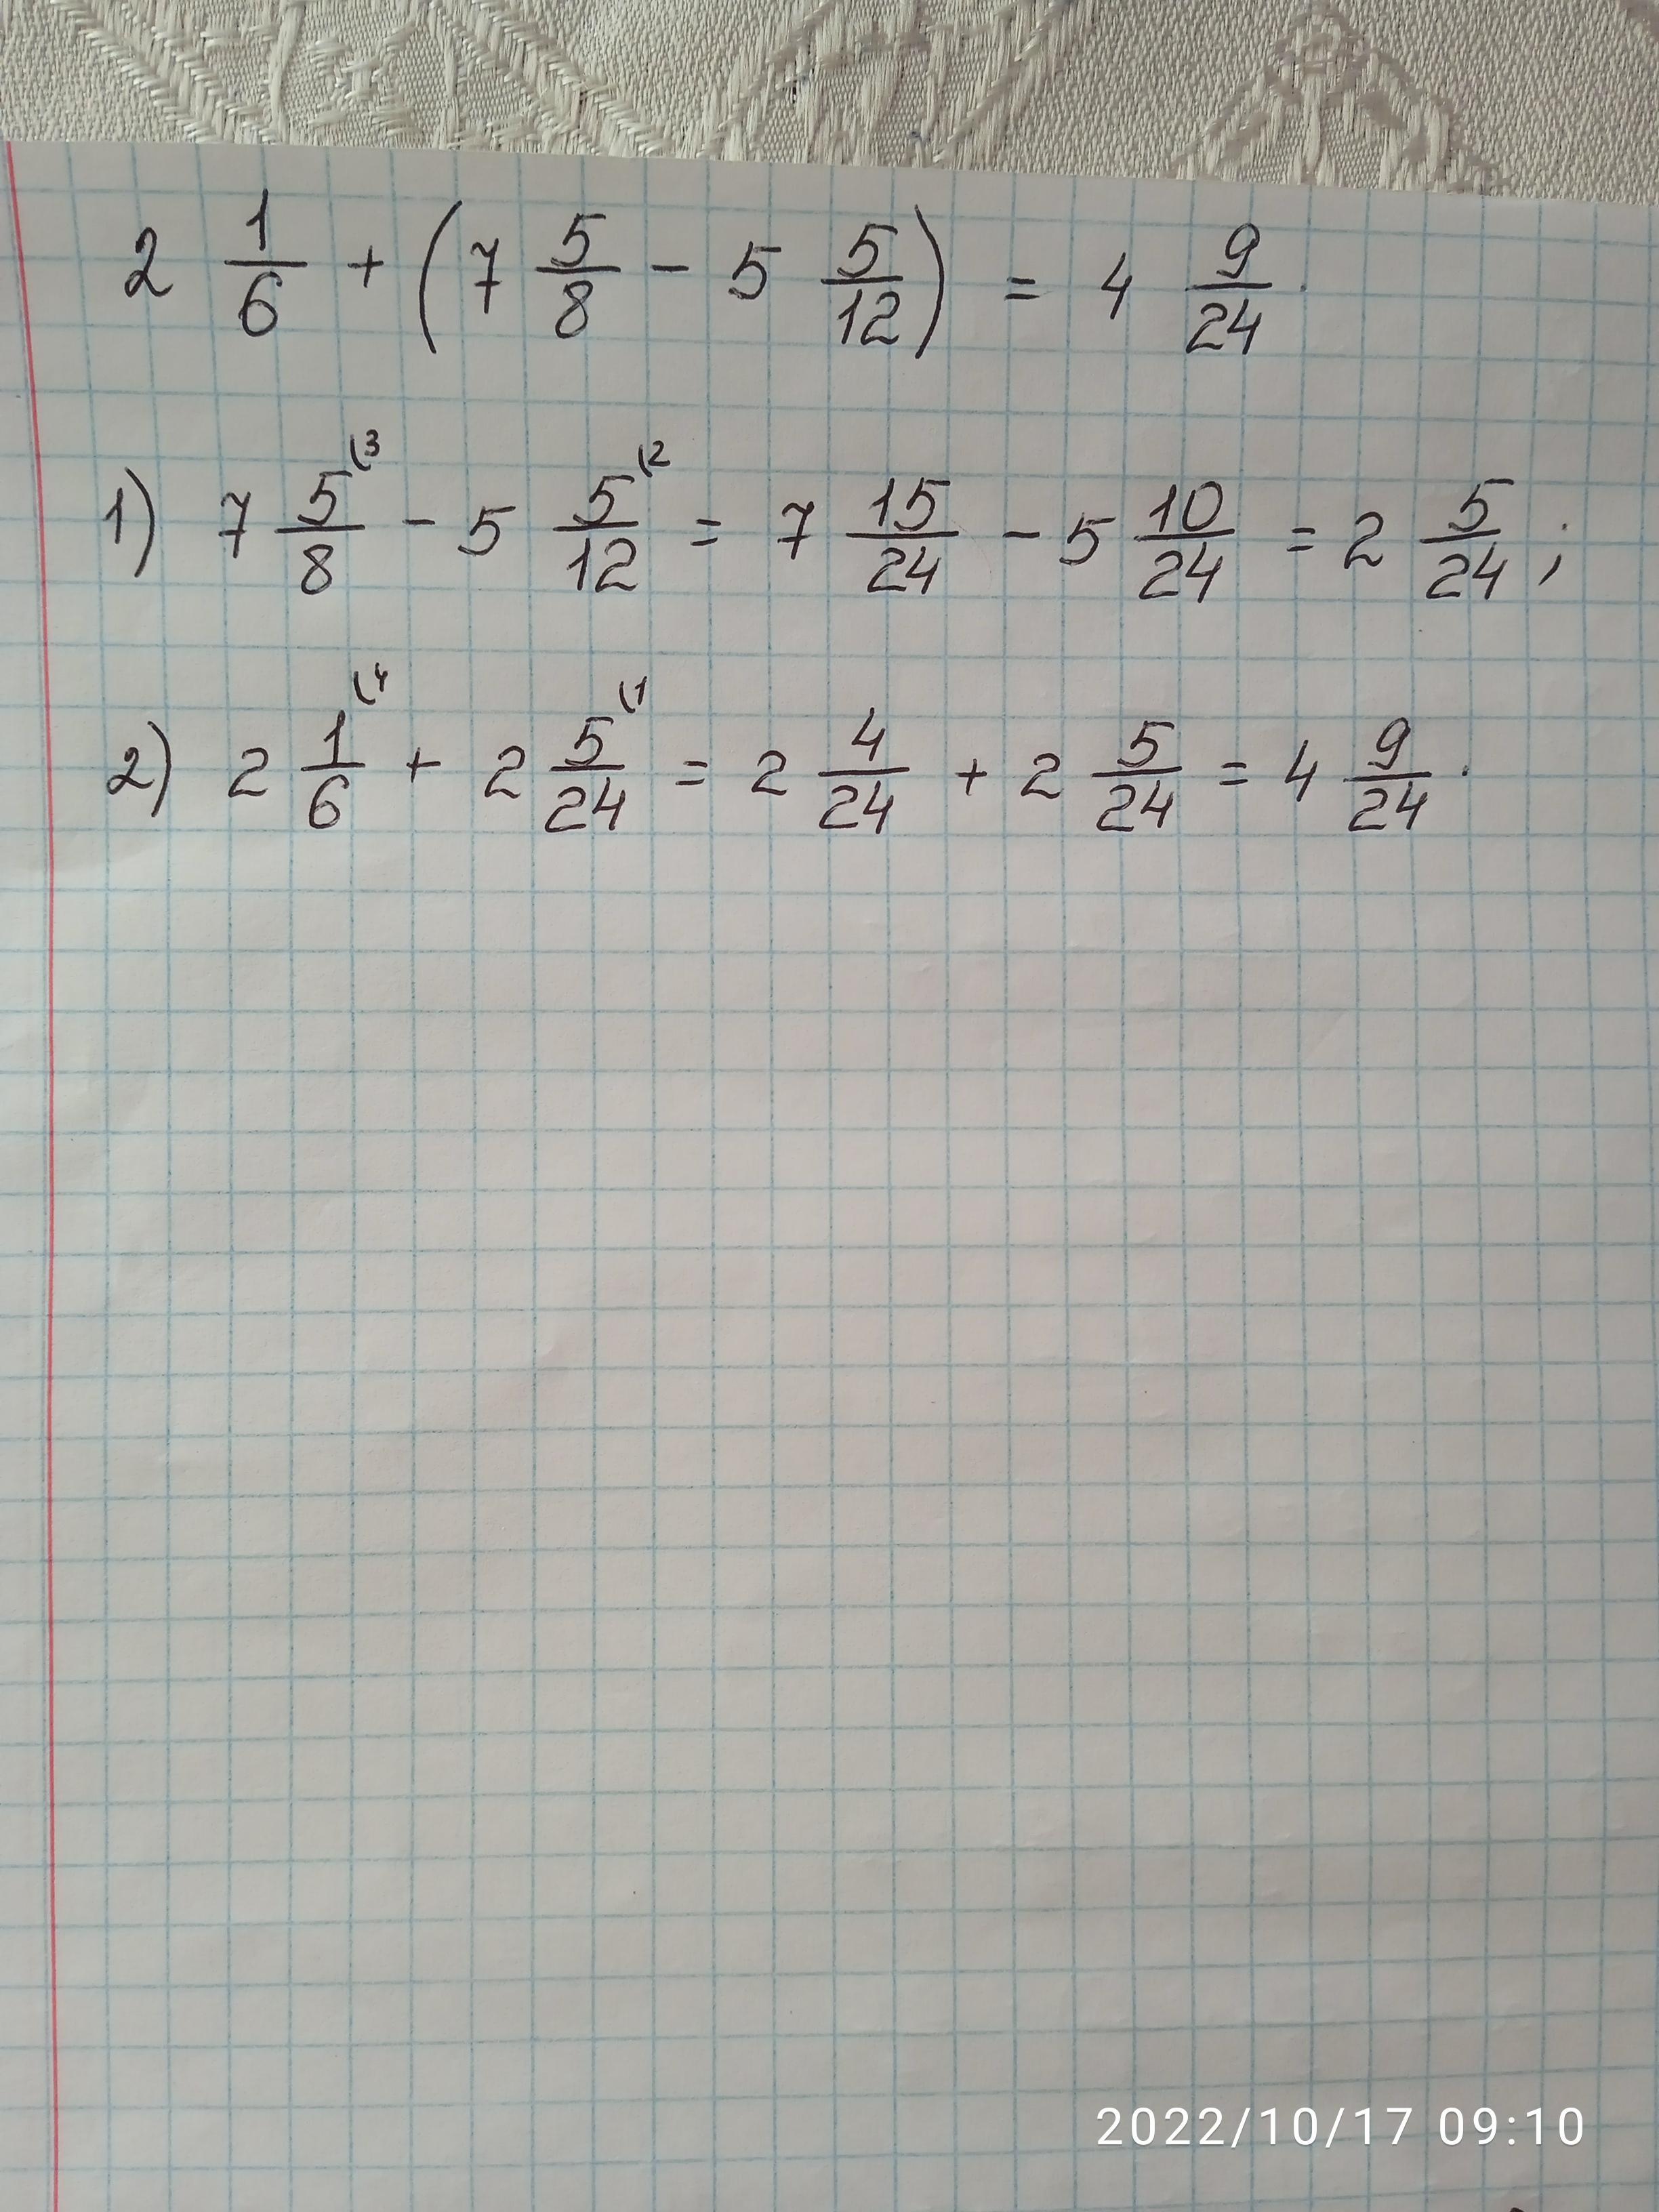 2 1/6 + (7 5/8 - 5 5/12) = 4 9/24.
1) 7 5/8 (3 - 5 5/12 (2 = 7 15/24 - 5 10/24 = 2 5/24;
2) 2 1/6 (4 + 2 5/24 (1 = 2 4/24 + 2 5/24 = 4 9/24.
2022/10/17 09:10